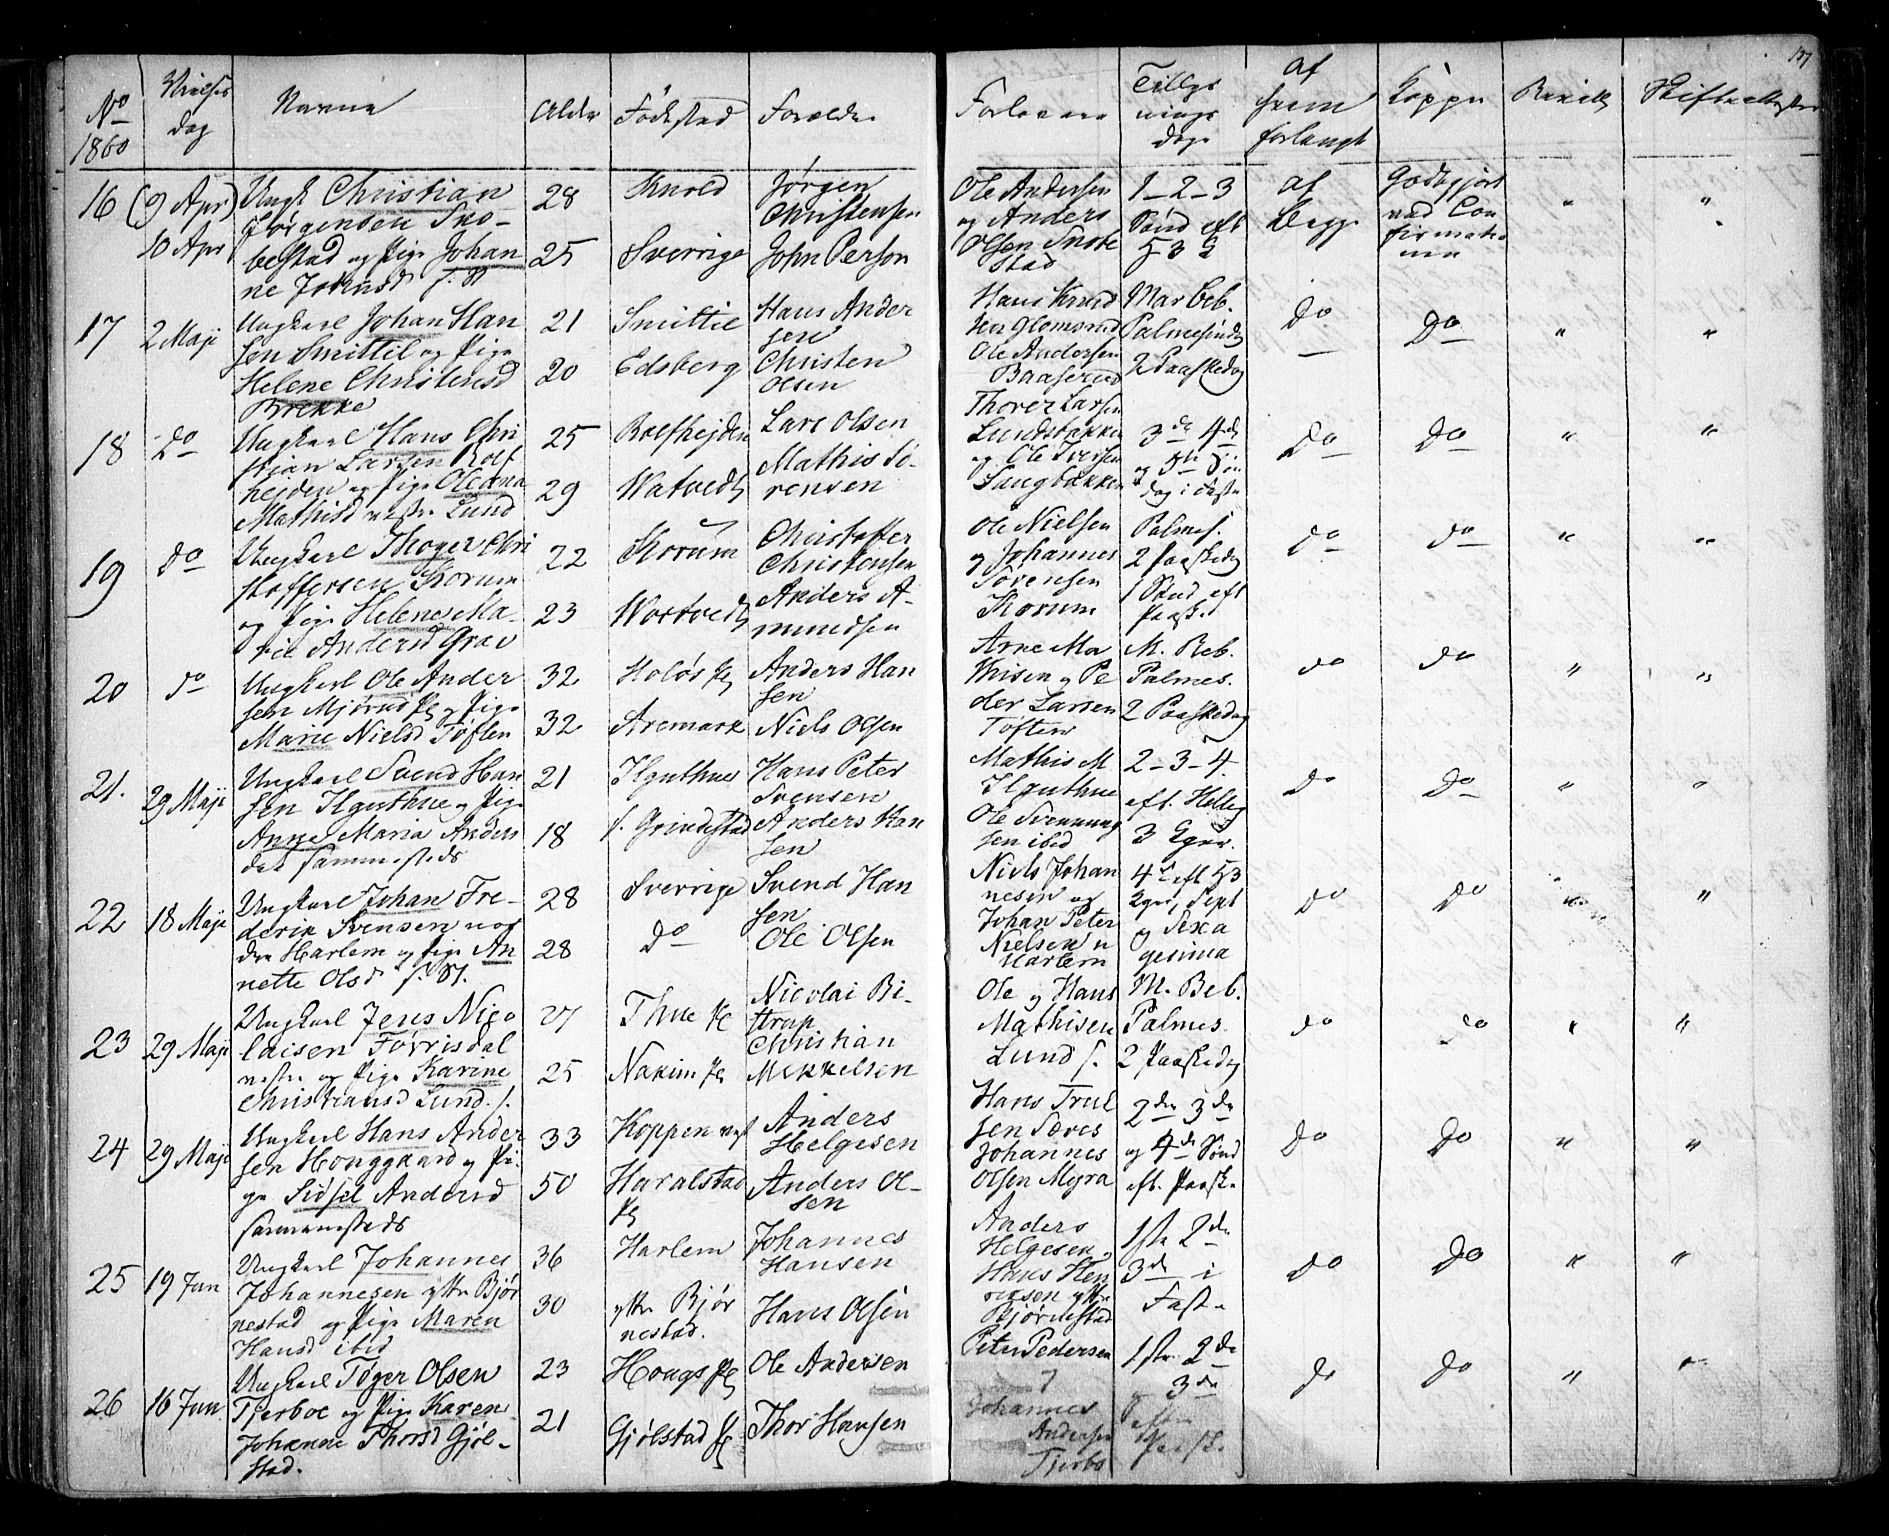 No 1860
Vielses dag
Navne
Alder
Fødested
Forældre
Forlovere
Tillys nings dage
af hvem forlangt
Kopper
Bevill
Skifteattester
137
16 (9 Apr) 10 Apr
Ungk Christian
Jørgensen Sno-
bestad og Pige Johan
ne Johnsd s. St
28
25
Sverrige
Jørgen
Christensen
John Person
Ole Andersen
og Anders
Olsen Snobe
stad
1-2-3
Sønd eft
H 3 K
af
Begge
Godtgjort
ved Con
firmatio
nen
17 2 Maji
Ungkarl Johan Han
sen Smittil og Pige
Helene Christensd
Brekke
21
20
Smittil
Edsberg
Hans Ander
sen
Christen
Olsen
Hans Knud
sen Glomsrud
Ole Andersen
Baaserud
Mar Beb.
Palmesøndg
2 Paaskedag
Do
Do
18 Do
Ungkarl Hans Chri
stian Larsen Rolf
hejden og Pige Oleana
Mathisd vestre Lund
25
29
Rolfhejden
Watvedt
Lars Olsen
Mathis Sø-
rensen
Thorer Larsen
Lundsbakken
og Ole Iversen
Haugbakken
3de 4de
og 5te Søn
dag i Faste
Do
Do
19 Do
Ungkarl Thoger Chri
stoffersen Skorum
og Pige Helene Ma-
rie Andersd Grav
22
23
Skorum
Wortvedt
Christoffer
Christensen
Anders A-
mundsen
Ole Nielsen
og Johannes
Sørensen
Skorum
Palmes.
2 Paaskedag
1 Sønd eft
Paaske
Do
Do
20 Do
Ungkarl Ole Ander
sen Mjørud Pl og Pige
Marie Nielsd Toften
32
32
Holøs Pl
Aremark
Anders Han
sen
Niels Olsen
Arne Ma
thisen og Pe
der Larsen
Toften
M. Beb.
Palmes.
2 Paaskedag
Do
Do
21. 29 Maji
Ungkarl Svend Han
sen Ilguthue og Pige
Anne Maria Anders
dat sammesteds
21
18
Ilguthue
s. Grindestad
Hans Peter
Svensen
Anders Han
sen
Mathis M
Ilguthue
Ole Svennung
sen ibid
2-3-4.
eft. Hellig
3 Kger.
Do
Do
22 18 Maji
Ungkarl Johan Fre-
derik Svensen nor
dre Harlem og Pige An
nette Olsd s. St.
28
28
Sverrige
Do
Svend Han
sen
Ole Olsen
Niels Johan
nesen og
Johan Peter
Nielsen n
Harlem
4de eft H3
Kger, Sept
og Sexa
gesima
Do
Do
23 29 Maji
Ungkarl Jens Nico
laisen Førrisdal
vestre og Pige Karine
Christiansd Lund. s.
27
25
Thue Pl
Nakim Pl
Nicolai Bi-
strup
Christian
Mikkelsen
Ole og Hans
Mathisen
Lund s.
M. Beb.
Palmes.
2 Paaskedag
Do
Do
24 29 Maji
Ungkarl Hans Ander
sen Honggaard og Pi-
ge Sidsel Andersd
sammesteds
33
50
Koppen vest
Haralstad
Pl
Anders
Helgesen
Anders Ol-
sen
Hans Trul
sen Sæves
Johannes
Olsen Myra
2den 3de
og 4de Sønd
eft. Paaske
Do
Do
25 19 Jun
Ungkarl Johannes
Johannesen ytre Bjør
nestad og Pige Maren
Hansd ibid
36
30
Harlem
ytre Bjør
nestad.
Johannes
Hansen
Hans Olsen
Anders
Helgesen og
Hans Hen
riksen ytre
Bjørnestad
1ste 2den
3de i
Faste
Do
Do
26 16 Jun.
Ungkarl Tøger Olsen
Tjerboe og Pige Karen
Johanne Thorsd Gjøl-
stad.
23
21
Hougs Pl
Gjølstad Pl
Ole Andersen
Thor Hansen
Peter Pedersen
og
Johannes
Andersen
Tjerbo
1ste 2den
og 3de
efter
Paaske
Do
Do